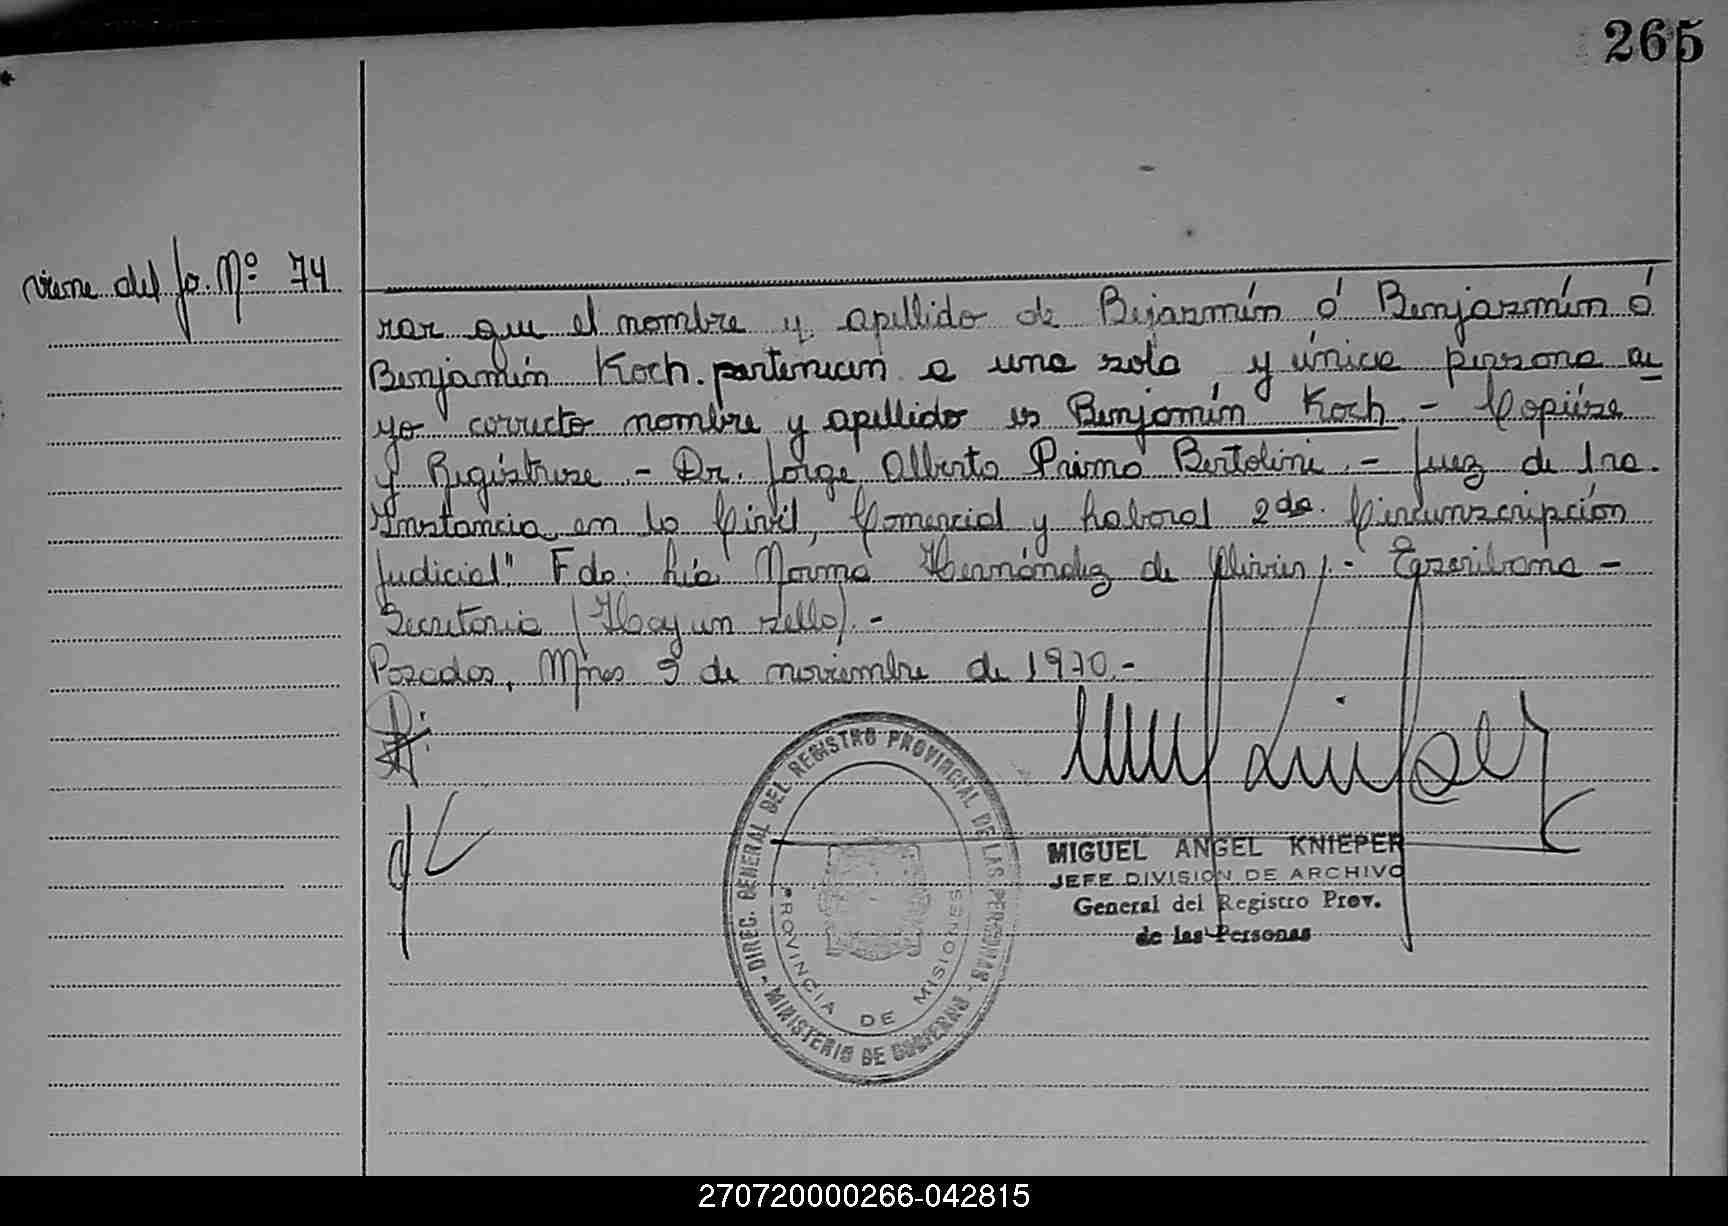 265
viene del fo. Nº 74
rar que el nombre y apellido de Bejarmín ó Benjarmín ó
Benjamín Koch. pertenecen a una sola y única persona cu
yo correcto nombre y apellido es Benjamín Koch. - Cópiese
y Regístrese. - Dr. Jorge Alberto Primo Bertolini. - Juez de 1ra.
Instancia en lo Civil, Comercial y Laboral 2da. Circunscripción
Judicial" Fdo. Lía Norma Hernández de - Escribana -
Secretaria (Hay un sello). -
Posadas, Mnes 9 de noviembre de 1970. -
DIREC. GENERAL DEL REGISTRO PROVINCIAL DE LAS PERSONAS - MINISTERIO DE GOBIERNO -
PROVINCIA DE MISIONES
MIGUEL ANGEL KNIEPER
JEFE DIVISION DE ARCHIVO
General del Registro Prov.
de las Personas
270720000266-042815